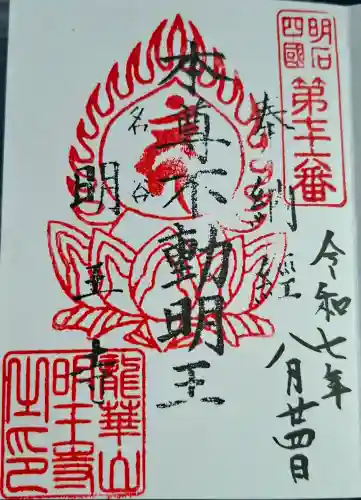 明石
四國
第七十二番
奉納経
令和七年
八月廿四日
本尊不動明王
名谷
明王寺
龍華山
明王寺
之印